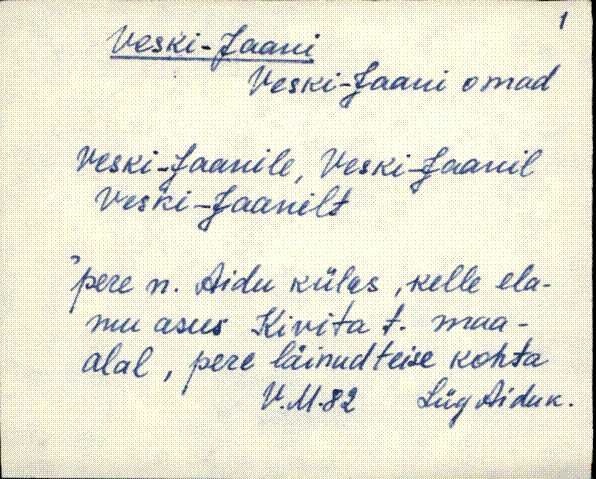 1
Veski-Jaani
Veski-Jaani omad
Veski-Jaanile, Veski-Jaanil
Veski-Jaanilt
"pere n. Aidu külas, kelle ela-
mu asus Kivita t. maa-
alal, pere läinud teise kohta
V.M.82 Lüg Aidu k.